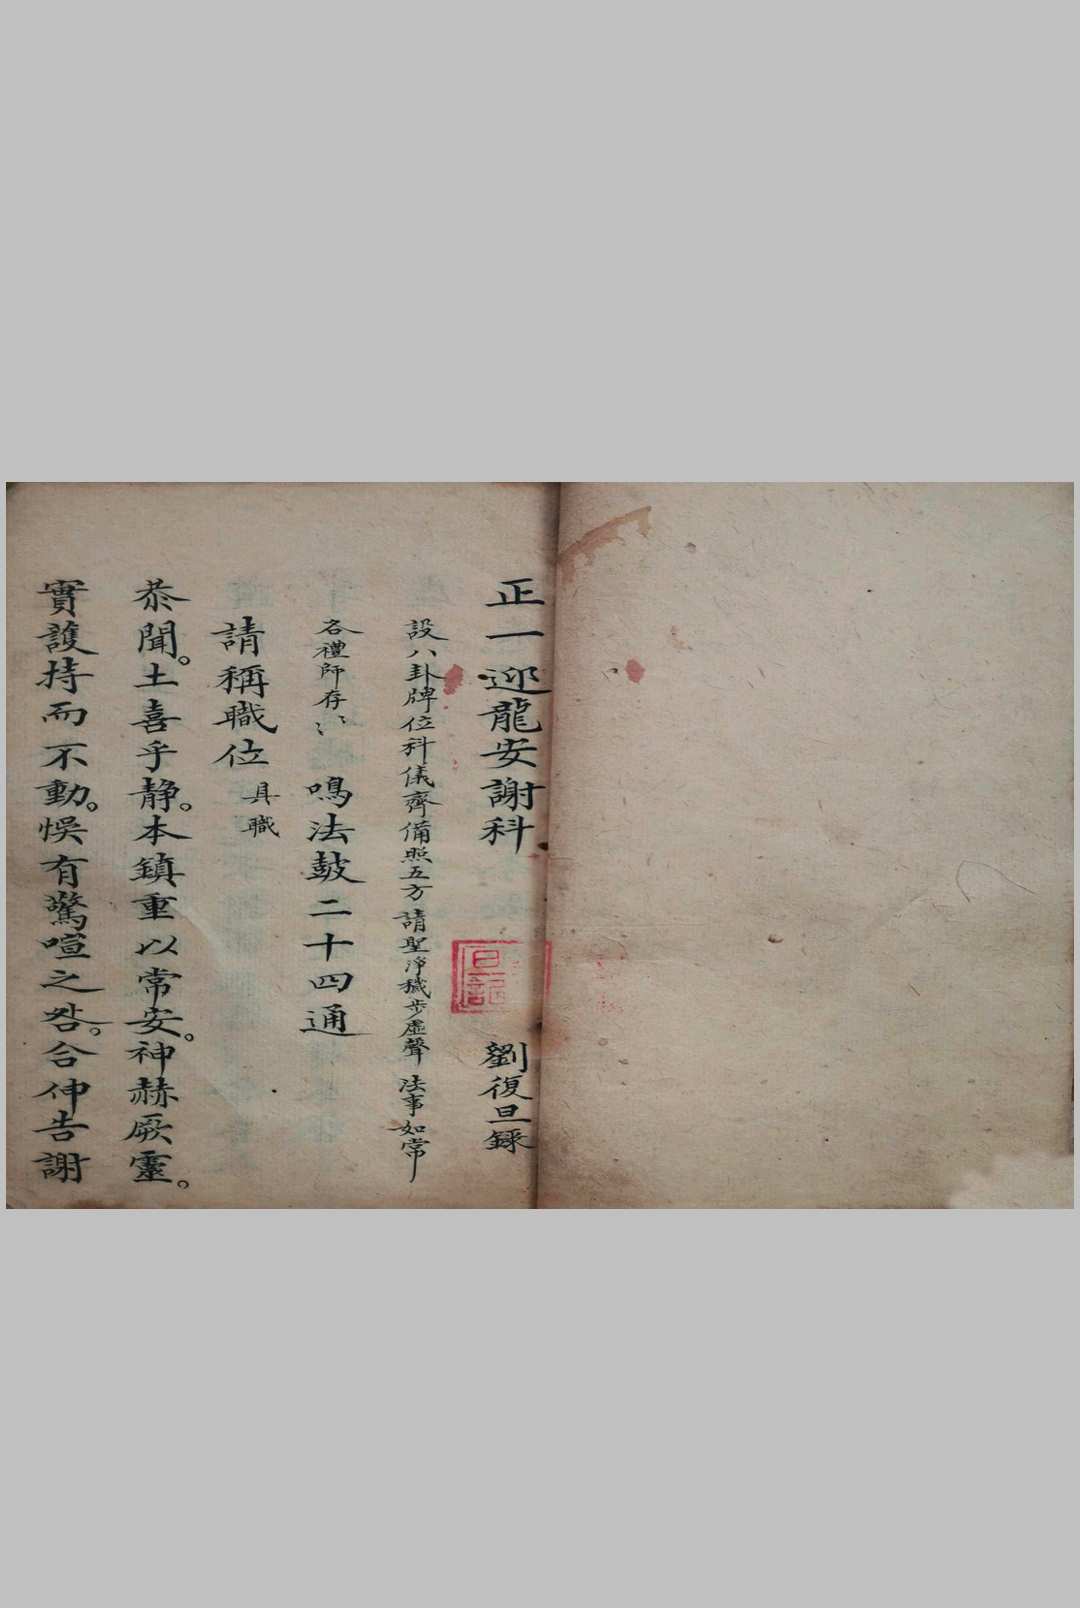 正一迎龍安謝科
劉復旦錄
設八卦牌位科儀齊備照五方 請聖淨穢步虛聲 法事如常
各禮師存〻 鳴法鼓二十四通
請稱職位 具職
恭聞。土喜乎静。本鎮重以常安。神赫厥靈。
實護持而不動。悞有驚喧之咎。合伸告謝